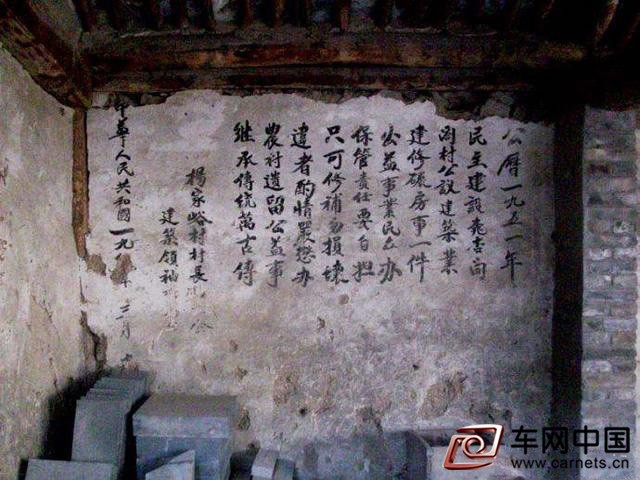 公曆一九五一年
民主建設走方向
閤村公議建築業
建修碾房事一件
公益事業民立办
保管責任要自担
只可修補勿損壞
違者酌情嚴懲办
農村遺留公益事
继承傳統萬古傳
楊家峪村村長
建築領袖
中華人民共和國一九 年 三月
车网中国
www.carnets.cn